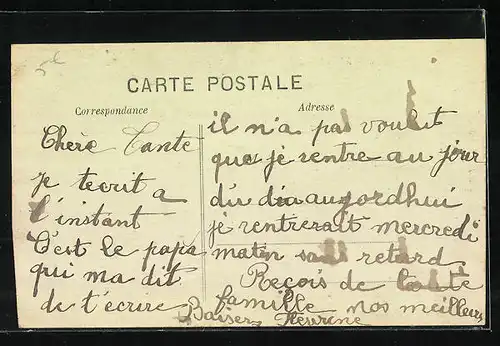 5c
CARTE POSTALE
Correspondance
Adresse
Chère Tante
je tecrit a
l'instant
C'est le papa
qui ma dit
de t'écrire
il n'a pas voulut
que je rentre au jour
du dia aujordhui
je rentrerait mercredi
matin sans retard
Reçois de toute
famille nos meilleurs
Baisers Fleurine